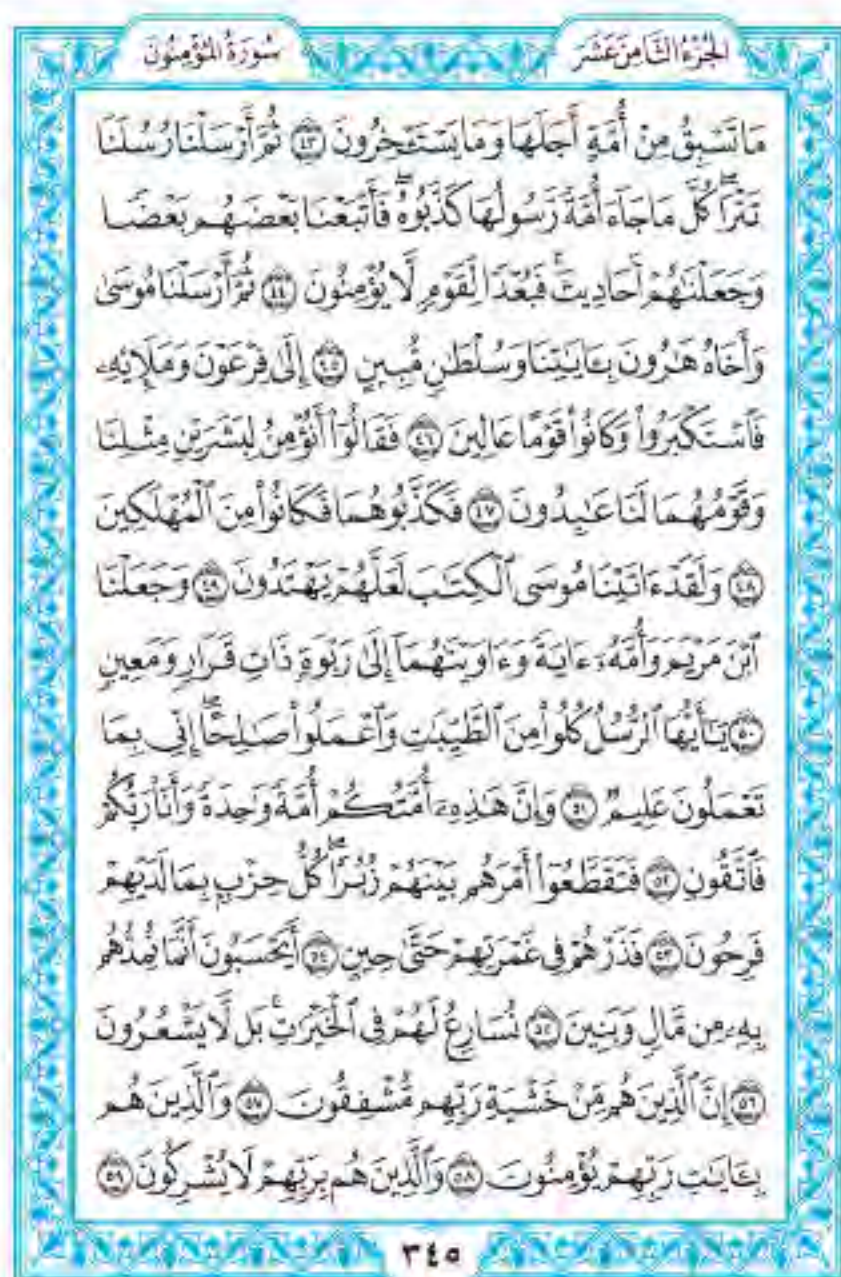 الجزء الثامن عشر
سورة المؤمنون
مَا تَسْبِقُ مِنْ أُمَّةٍ أَجَلَهَا وَمَا يَسْتَـْٔخِرُونَ ٤٣ ثُمَّ أَرْسَلْنَا رُسُلَنَا
تَتْرَاۖ كُلَّ مَا جَآءَ أُمَّةً رَّسُولُهَا كَذَّبُوهُۖ فَأَتْبَعْنَا بَعْضَهُم بَعْضًا
وَجَعَلْنَٰهُمْ أَحَادِيثَۚ فَبُعْدًا لِّقَوْمٍ لَّا يُؤْمِنُونَ ٤٤ ثُمَّ أَرْسَلْنَا مُوسَىٰ
وَأَخَاهُ هَٰرُونَ بِـَٔايَٰتِنَا وَسُلْطَٰنٍ مُّبِينٍ ٤٥ إِلَىٰ فِرْعَوْنَ وَمَلَإِيْهِۦ
فَٱسْتَكْبَرُوا۟ وَكَانُوا۟ قَوْمًا عَالِينَ ٤٦ فَقَالُوٓا۟ أَنُؤْمِنُ لِبَشَرَيْنِ مِثْلِنَا
وَقَوْمُهُمَا لَنَا عَٰبِدُونَ ٤٧ فَكَذَّبُوهُمَا فَكَانُوا۟ مِنَ ٱلْمُهْلَكِينَ
٤٨ وَلَقَدْ ءَاتَيْنَا مُوسَى ٱلْكِتَٰبَ لَعَلَّهُمْ يَهْتَدُونَ ٤٩ وَجَعَلْنَا
ٱبْنَ مَرْيَمَ وَأُمَّهُۥٓ ءَايَةً وَءَاوَيْنَٰهُمَآ إِلَىٰ رَبْوَةٍ ذَاتِ قَرَارٍ وَمَعِينٍ
٥٠ يَٰٓأَيُّهَا ٱلرُّسُلُ كُلُوا۟ مِنَ ٱلطَّيِّبَٰتِ وَٱعْمَلُوا۟ صَٰلِحًاۖ إِنِّى بِمَا
تَعْمَلُونَ عَلِيمٌ ٥١ وَإِنَّ هَٰذِهِۦٓ أُمَّتُكُمْ أُمَّةً وَٰحِدَةً وَأَنَا۠ رَبُّكُمْ
فَٱتَّقُونِ ٥٢ فَتَقَطَّعُوٓا۟ أَمْرَهُم بَيْنَهُمْ زُبُرًاۖ كُلُّ حِزْبٍۭ بِمَا لَدَيْهِمْ
فَرِحُونَ ٥٣ فَذَرْهُمْ فِى غَمْرَتِهِمْ حَتَّىٰ حِينٍ ٥٤ أَيَحْسَبُونَ أَنَّمَا نُمِدُّهُم
بِهِۦ مِن مَّالٍ وَبَنِينَ ٥٥ نُسَارِعُ لَهُمْ فِى ٱلْخَيْرَٰتِۚ بَل لَّا يَشْعُرُونَ
٥٦ إِنَّ ٱلَّذِينَ هُم مِّنْ خَشْيَةِ رَبِّهِم مُّشْفِقُونَ ٥٧ وَٱلَّذِينَ هُم
بِـَٔايَٰتِ رَبِّهِمْ يُؤْمِنُونَ ٥٨ وَٱلَّذِينَ هُم بِرَبِّهِمْ لَا يُشْرِكُونَ ٥٩
٣٤٥